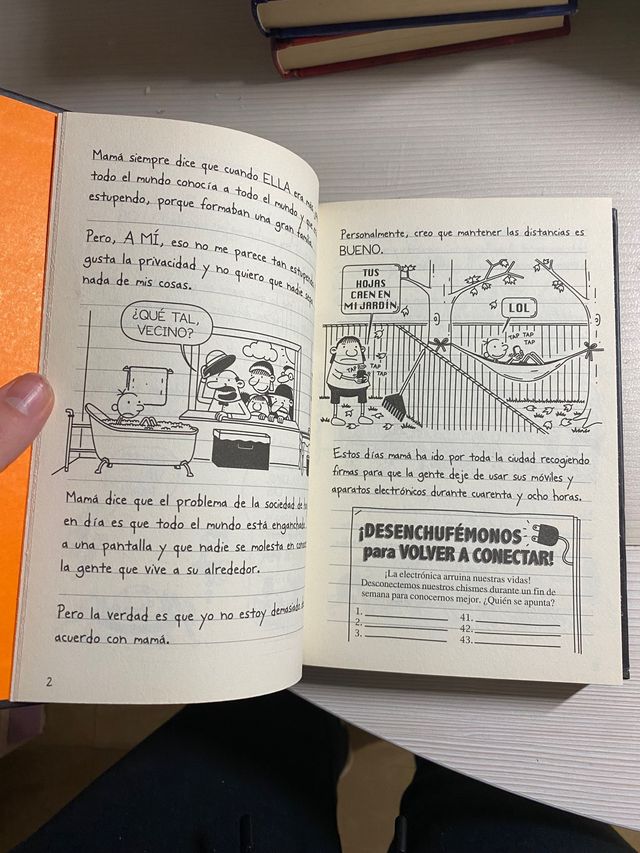 Mamá siempre dice que cuando ELLA era
todo el mundo conocía a todo el mundo y que
estupendo, porque formaban una gran familia.
Pero, A MÍ, eso no me parece tan estupendo.
gusta la privacidad y no quiero que nadie sepa
nada de mis cosas.
¿QUÉ TAL,
VECINO?
Mamá dice que el problema de la sociedad de
en día es que todo el mundo está enganchado
a una pantalla y que nadie se molesta en
la gente que vive a su alrededor.
Pero la verdad es que yo no estoy demasiado de
acuerdo con mamá.
2
Personalmente, creo que mantener las distancias es
BUENO.
TUS
HOJAS
CAEN EN
MI JARDÍN
LOL
TAP TAP
TAP
TAP
TAP TAP
Estos días mamá ha ido por toda la ciudad recogiendo
firmas para que la gente deje de usar sus móviles y
aparatos electrónicos durante cuarenta y ocho horas.
¡DESENCHUFÉMONOS
para VOLVER A CONECTAR!
¡La electrónica arruina nuestras vidas!
Desconectemos nuestros chismes durante un fin de
semana para conocernos mejor. ¿Quién se apunta?
1. 41.
2. 42.
3. 43.